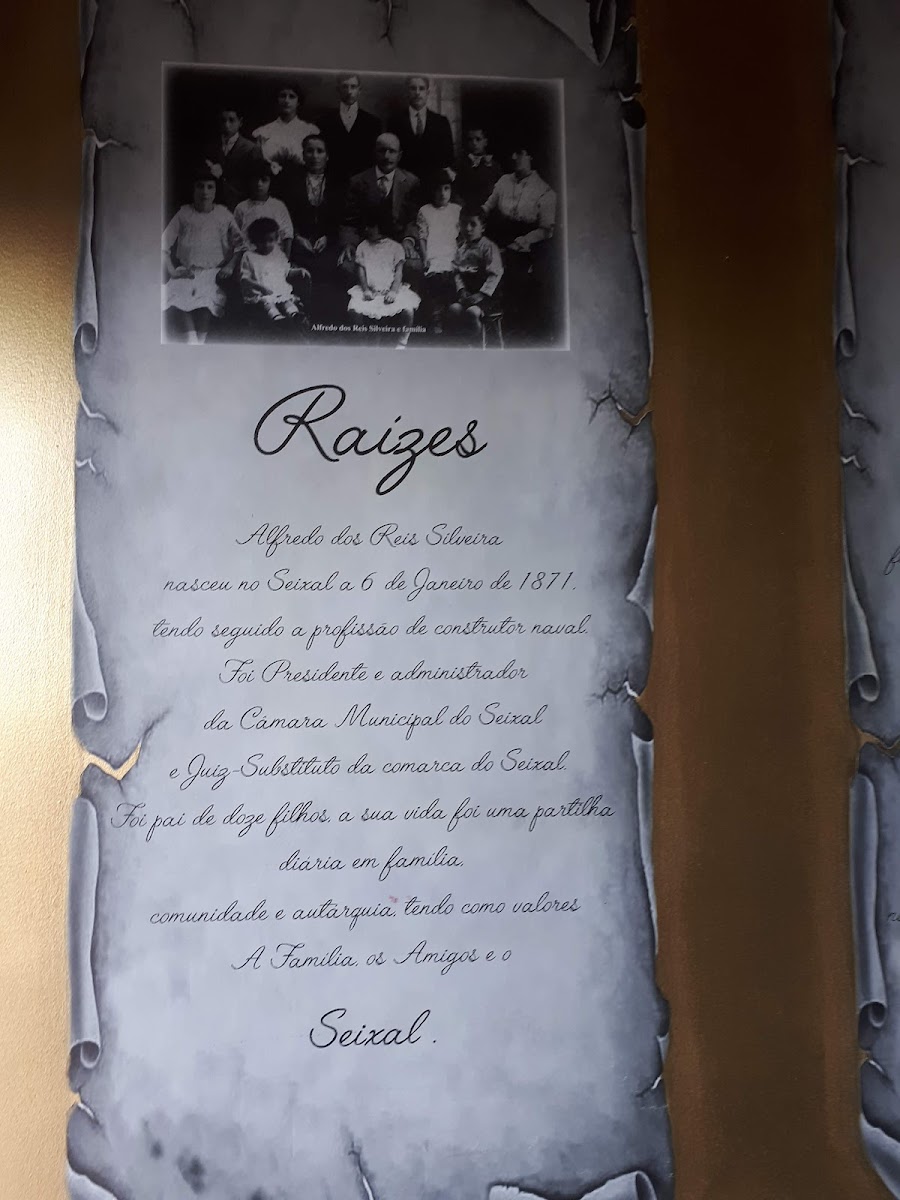 Alfredo dos Reis Silveira e família
Raízes
Alfredo dos Reis Silveira
nasceu no Seixal a 6 de Janeiro de 1871,
tendo seguido a profissão de construtor naval.
Foi Presidente e administrador
da Câmara Municipal do Seixal
e Juiz-Substituto da comarca do Seixal.
Foi pai de doze filhos, a sua vida foi uma partilha
diária em família,
comunidade e autarquia, tendo como valores
A Família, os Amigos e o
Seixal .